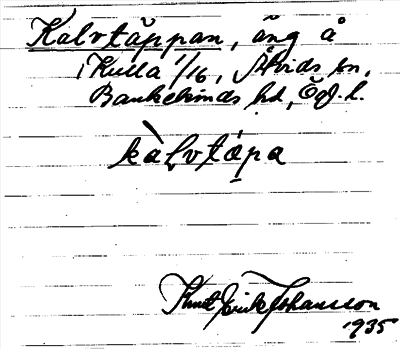 Kalvtäppan, äng å
Kulla 1/16, Åtvids sn,
Bankekinds hd, Ög. l.
kàlvtápa
Knut Erik Johansson
1935